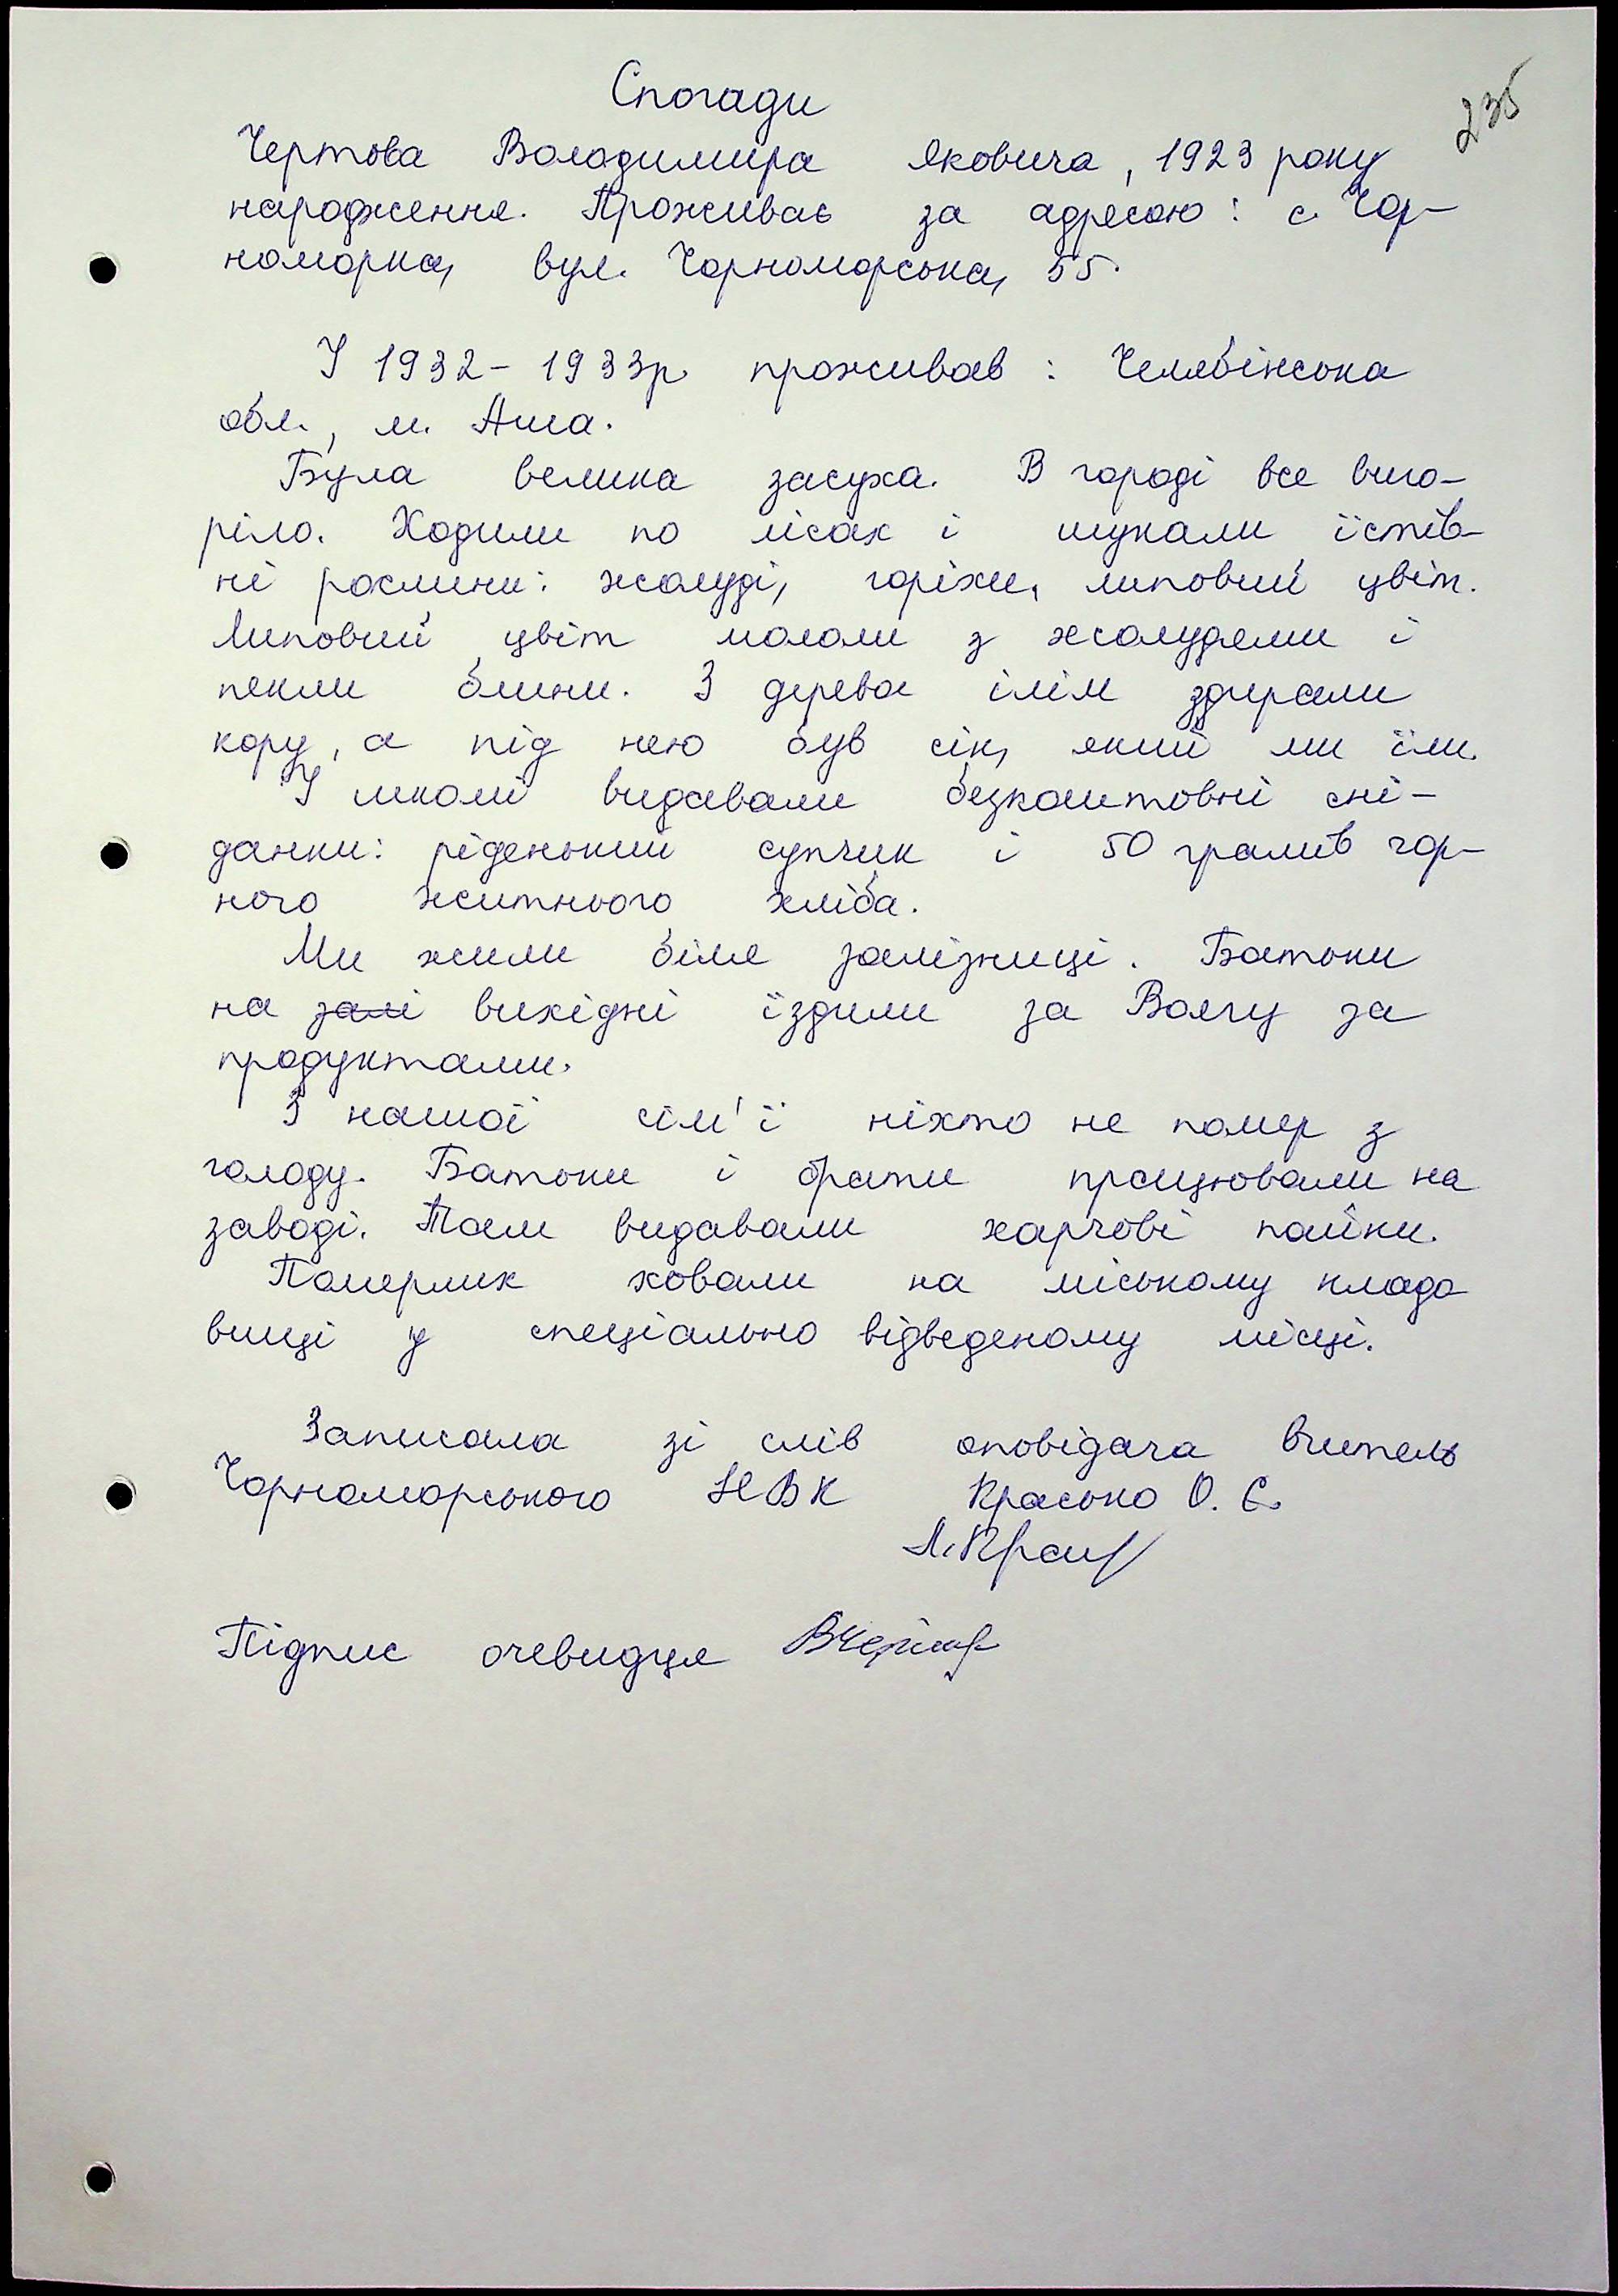 235
Спогади
Чертова Володимира Яковича, 1923 року
народження. Проживає за адресою: с. Чор-
номорка, вул. Чорноморська, 55.
У 1932-1933р. проживав: Челябінська
обл., м. Аша.
Була велика засуха. В городі все виго-
ріло. Ходили по лісах і шукали їстів-
ні рослини: жолуді, горіхи, липовий цвіт.
Липовий цвіт мололи з жолудями і
пекли блини. З дерева ілім здирали
кору, а під нею був сік, який ми їли.
У школі видавали безкоштовні сні-
данки: ріденький супчик і 50 грамів чор-
ного житнього хліба.
Ми жили біля залізниці. Батьки
на залі вихідні їздили за Волгу за
продуктами.
З нашої сім'ї ніхто не помер з
голоду. Батьки і брати працювали на
заводі. Там видавали харчові пайки.
Померлих ховали на міському кладо
вищі у спеціально відведеному місці.
Записала зі слів оповідача вчитель
Чорноморського НВК Красько О. Є.
Підпис очевидця